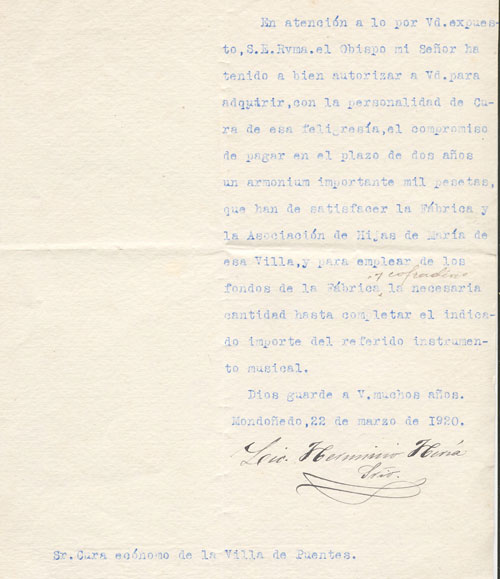 En atención a lo por Vd.expues-
to,S.E.Rvma.el Obispo mi Señor ha
tenido a bien autorizar a Vd.para
adqutrir,con la personalidad de Cu-
ra de esa feligresía,el compromiso
de pagar en el plazo de dos años
un armonium importante mil pesetas,
que han de satisfacer la Fábrica y
la Asociación de Hijas de María de
esa Villa,y para emplear de los
y cofradías
fondos de la Fábrica la necesaria
cantidad hasta completar el indica-
do importe del referido instrumen-
to musical.
Dios guarde a V.muchos años.
Mondoñedo,22 de marzo de 1920.
Lic. Herminio
Srio.
Sr.Cura ecónomo de la Villa de Puentes.